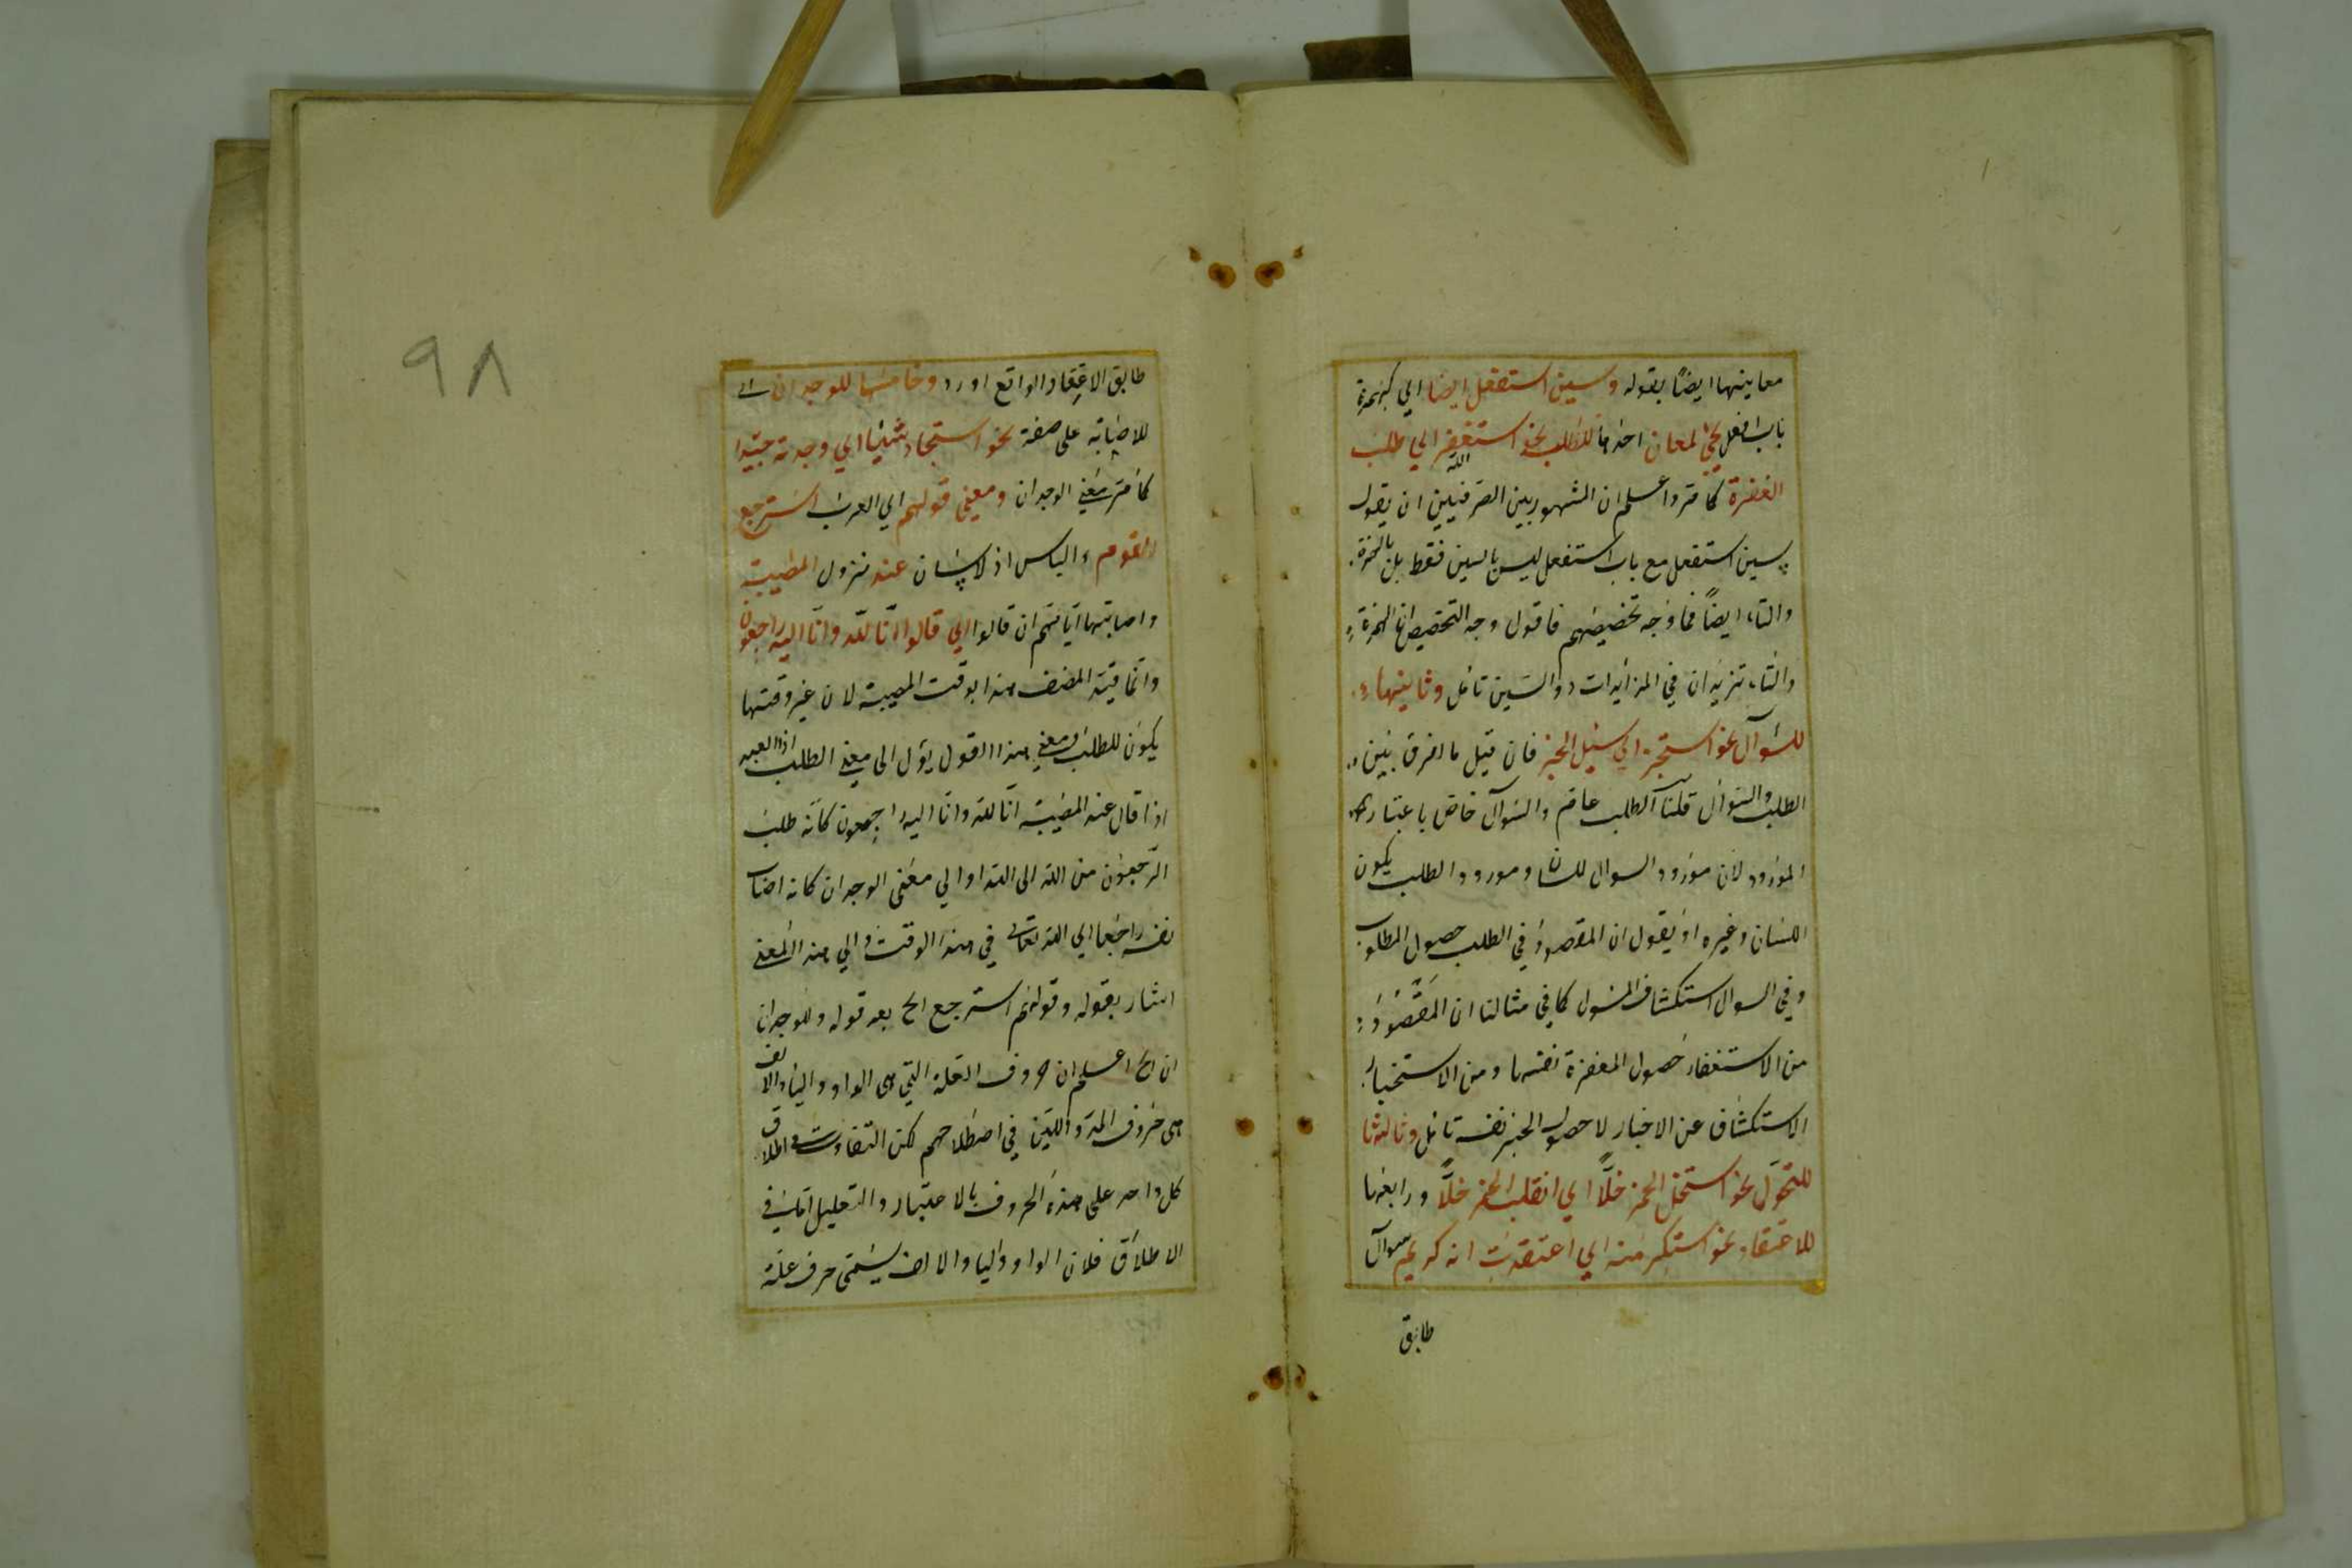 معانيها ايضًا بقوله وسين استفعل ايضا اي كهمزة
باب افعل يجئ لمعان احدها للطلب نحو استغفر الله اي طلب
المغفرة كما مر واعلم ان المشهور بين الصرفيين ان يقول
سين استفعل مع باب استفعل ليس بالسين فقط بل بالهمزة
والتاء ايضًا فما وجه تخصيصهم فاقول وجه التخصيص ان الهمزة
والتاء تزيدان في المزايدات دو السين تامل وثانيها
للسؤال نحو استخبر اي سئل الخبر فان قيل ما الفرق بين
الطلب والسؤال قلنا الطلب عام والسؤال خاص باعتبار
المورود لان مورود السوال للسان ومورود الطلب يكون
اللسان وغيره او يقول ان المقصود في الطلب حصول المطلوب
وفي السوال استكشاف المسول كما في مثالنا ان المقصود
من الاستغفار حصول المغفرة نفسها ومن الاستخبار
الاستكشاف عن الاخبار لا حصول الخبر نفسه تامل وثالثها
للتحول نحو استخل الخمر خلًّا اي انقلب الخمر خلًّا ورابعها
للاعتقاد نحو استكرمته اي اعتقدت انه كريم سواء
طابق
٩٨
طابق الاعتقاد الواقع او رد وخامسها للوجدان اي
للاصابة على صفة نحو استجاد شيئا اي وجدته جيدا
كما مر معنى الوجدان ومعنى قولهم اي العرب استرجع
القوم والناس عند نزول المصيبة
واصابتها اياهم ان قالوا اي قالوا انّا لله وانّا اليه راجعون
وانما قيد المصنف هذا بوقت المصيبة لان غير وقتها
يكون للطلب ومعنى هذا القول يؤل الى معنى الطلب اذ العبد
اذا قال عند المصيبة انّا لله وانّا اليه راجعون كانه طلب
الرجعون من الله الى الله او الى معنى الوجدان كانه اصاب
نفسه راجعا الى الله تعالى في هذا الوقت والى هذا المعنى
اشار بقوله وقولهم استرجع الخ بعد قوله وللوجدان
ان الخ اعلم ان حروف العلة التي هى الواو والياء والالف
هى حروف المد واللين في اصطلاحهم لكن التفاوت في اطلاق
كل واحد على هذه الحروف بالاعتبار والتعليل اما في
الاطلاق فلان الواو والياء والالف يسمى حرف علة